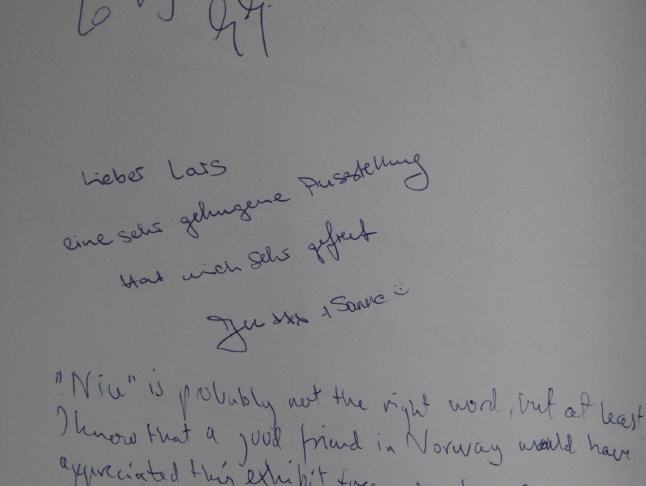 Lieber Lars
eine sehr gelungene Ausstellung
Hat mich sehr gefreut
+ Sanne :)
"Nice" is probably not the right word, but at least
I know that a good friend in Norway would have
appreciated this exhibit